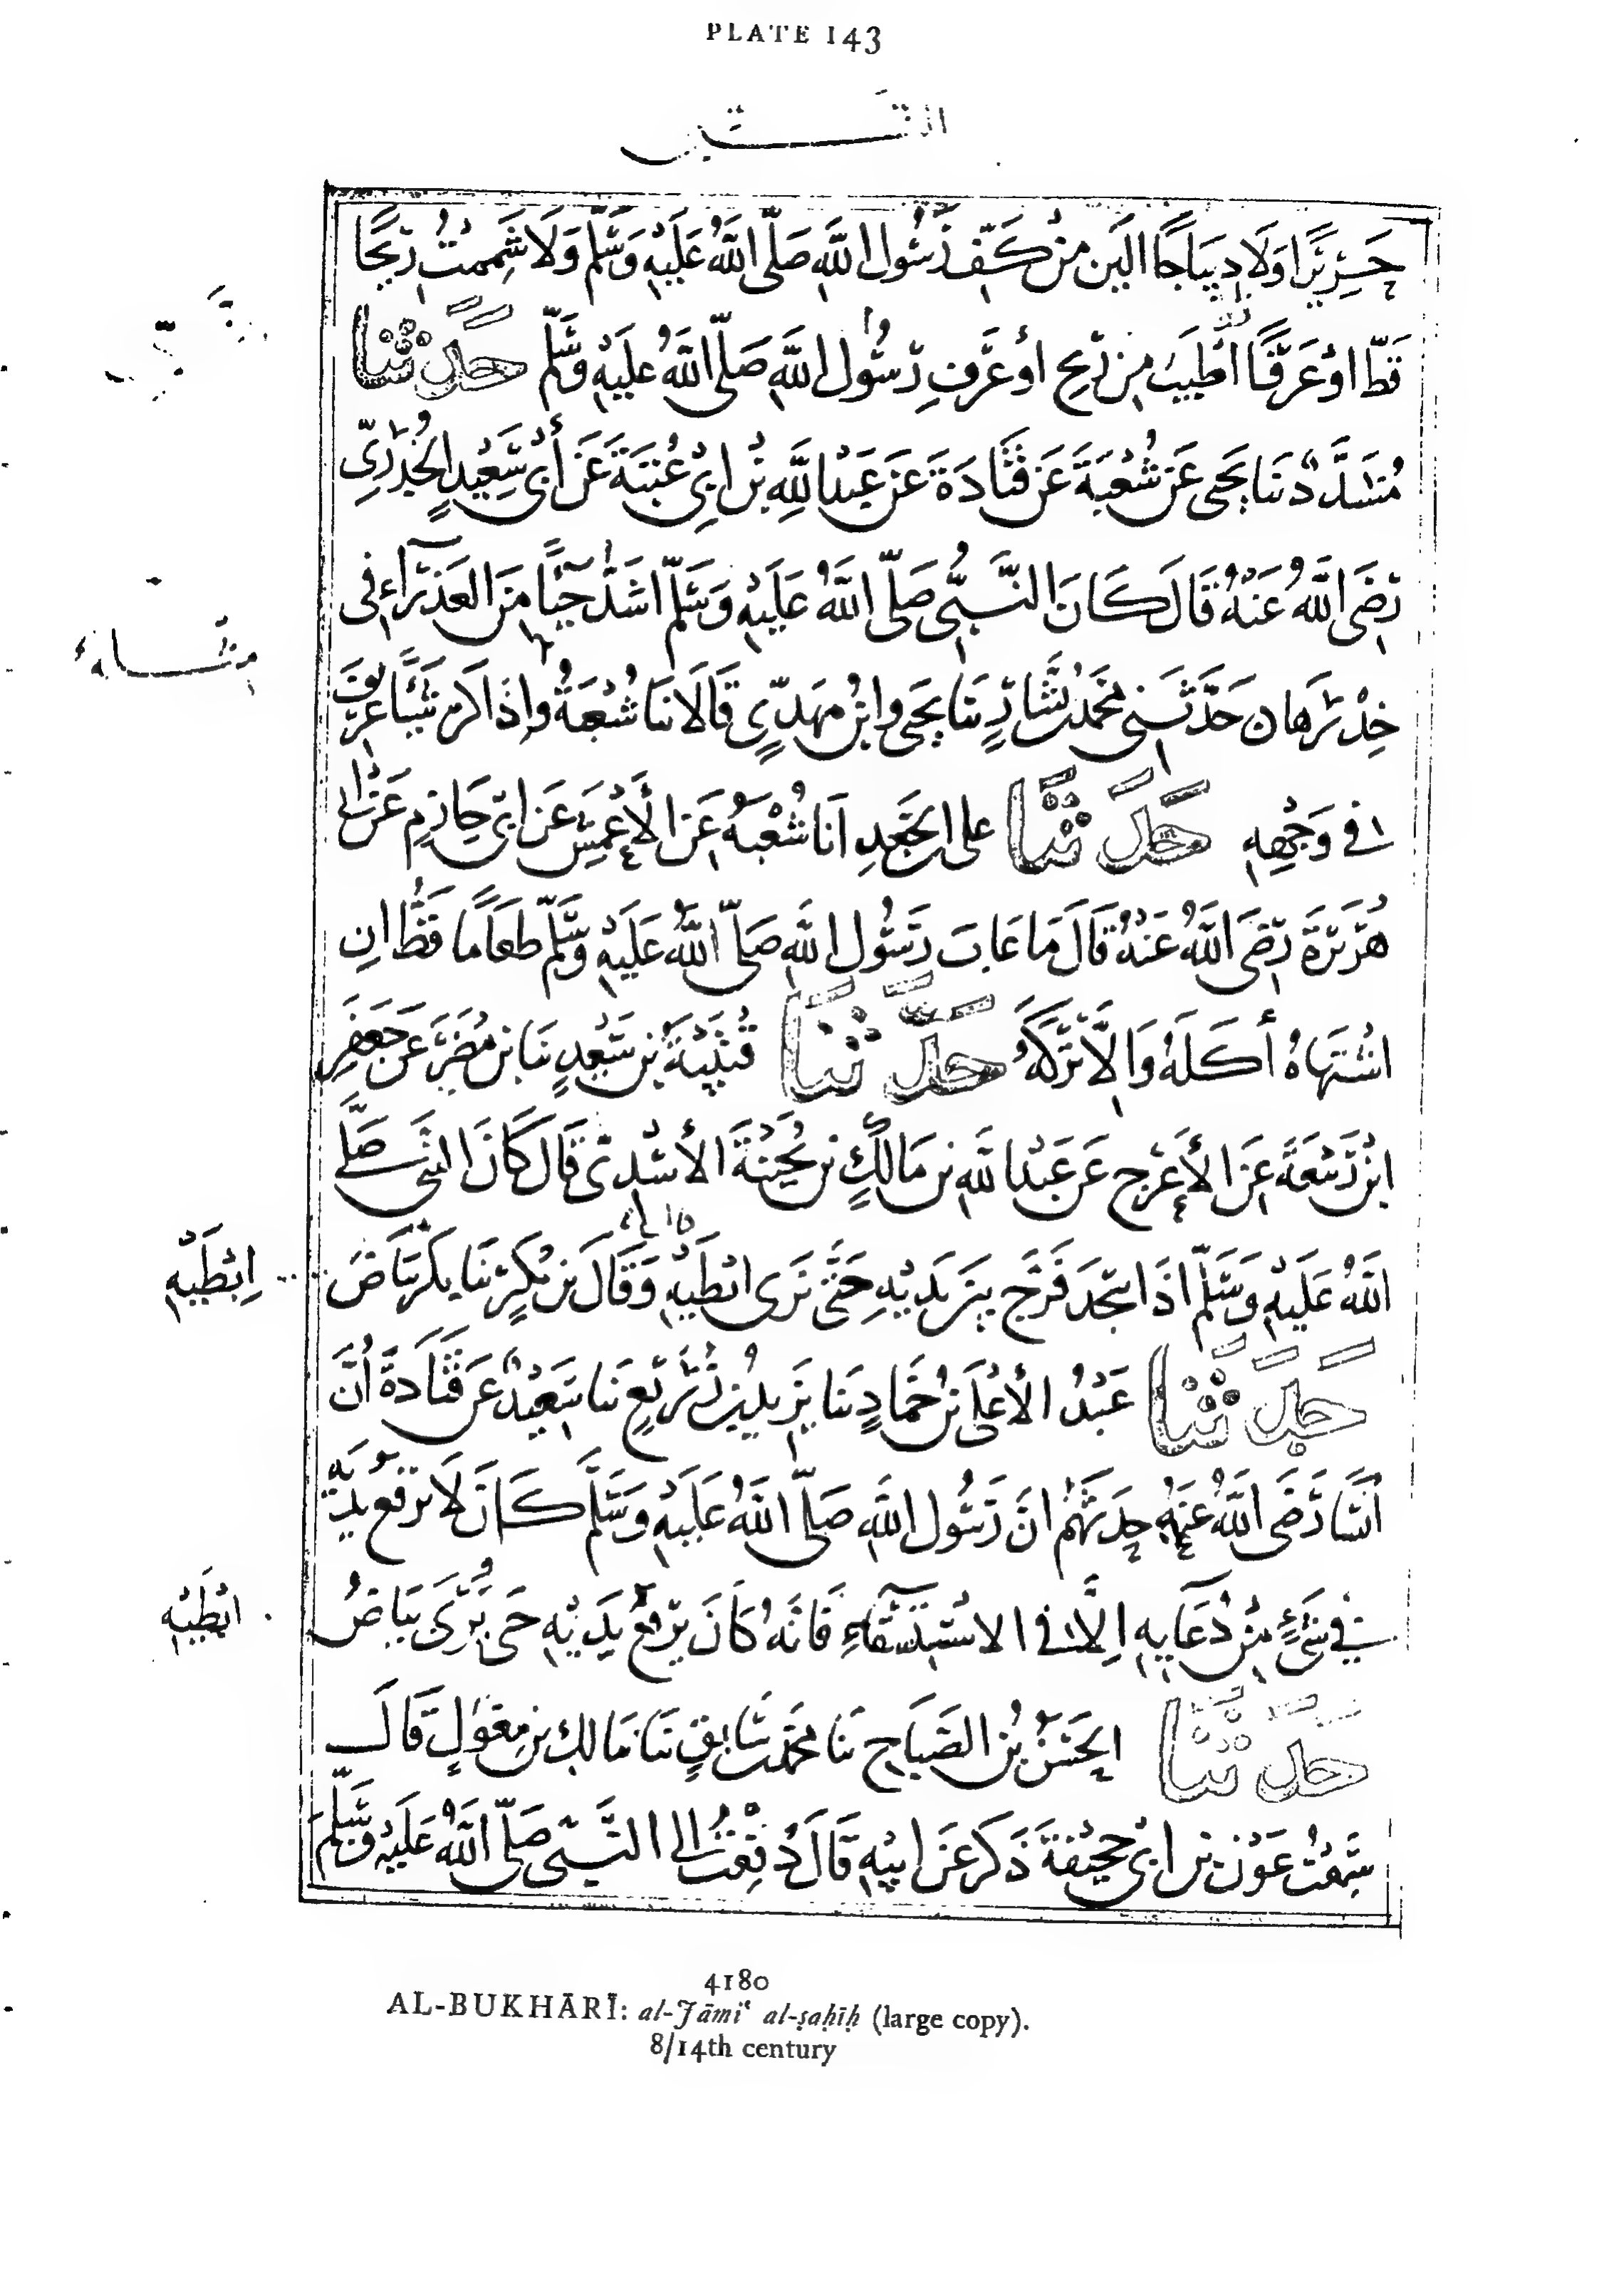 PLATE 143
حَرِيرًا وَلَا دِيبَاجًا الْيَنَ مِنْ كَفِّ رَسُولِ اللَّهِ صَلَّى اللَّهُ عَلَيْهِ وَسَلَّمَ وَلَا شَمِمْتُ رِيحًا
قَطُّ اَوْ عَرَقًا اَطْيَبَ مِنْ رِيحِ اَوْ عَرَفِ رَسُولِ اللَّهِ صَلَّى اللَّهُ عَلَيْهِ وَسَلَّمَ حَدَّثَنَا
مُسَدَّدٌ نَنَا يَحْيَى عَنْ شُعْبَةَ عَنْ قَتَادَةَ عَنْ عَبْدِ اللَّهِ بْنِ اَبِى عُتْبَةَ عَنْ أَبِى سَعِيدٍ الْخُدْرِىِّ
رَضِىَ اللَّهُ عَنْهُ قَالَ كَانَ النَّبِىُّ صَلَّى اللَّهُ عَلَيْهِ وَسَلَّمَ اَشَدَّ حَيَآءً مِنَ الْعَذْرَآءِ فِى
خِدْرِهَا ن حَدَّثَنِى مُحَمَّدُ بْنُ بَشَّارٍ ثَنَا يَحْيَى وابْنُ مَهْدِىٍّ قَالَا نَنَا شُعْبَةُ وَاِذَا كَرِهَ شَيْئًا عُرِفَ
فِى وَجْهِهِ حَدَّثَنَا على بْنُ الْجَعْدِ اَنَا شُعْبَةُ عَنِ الْأَعْمَشِ عَنْ اَبِى حَازِمٍ عَنْ اَبِى
هُرَيْرَةَ رَضِىَ اللَّهُ عَنْهُ قَالَ مَا عَابَ رَسُولُ اللَّهِ صَلَّى اللَّهُ عَلَيْهِ وَسَلَّمَ طَعَامًا قَطُّ اِنِ
اشْتَهَاهُ أَكَلَهُ وَاِلَّا تَرَكَهُ حَدَّثَنَا قُتَيْبَةُ بْنُ سَعِيدٍ نَنَا بَكْرُ بْنُ مُضَرَ عَنْ جَعْفَرِ
ابْنِ رَبِيعَةَ عَنِ الْأَعْرَجِ عَنْ عَبْدِ اللَّهِ بْنِ مَالِكٍ بْنِ بُحَيْنَةَ الْأَسْدِىِّ قَالَ كَانَ النَّبِىُّ صَلَّى
اللَّهُ عَلَيْهِ وَسَلَّمَ اِذَا سَجَدَ فَرَّجَ بَيْنَ يَدَيْهِ حَتَّى نَرَى اِبْطَيْهِ وَقَالَ بْنُ بُكَيْرٍ نَنَا بَكْرٌ بَيَاضَ
اِبْطَيْهِ
حَدَّثَنَا عَبْدُ الْأَعْلَى بْنُ حَمَّادٍ نَنَا يَزِيدُ بْنُ زُرَيْعٍ نَنَا سَعِيدٌ عَنْ قَتَادَةَ اَنَّ
اَنَسًا رَضِىَ اللَّهُ عَنْهُ حَدَّثَهُمْ اَنَّ رَسُولَ اللَّهِ صَلَّى اللَّهُ عَلَيْهِ وَسَلَّمَ كَانَ لَا يَرْفَعُ يَدَيْهِ
فِى شَىْءٍ مِنْ دُعَايِهِ اِلَّا فِى الاسْتِسْقَآءِ فَاِنَّهُ كَانَ يَرْفَعُ يَدَيْهِ حَتَّى يُرَى بَيَاضُ
اِبْطَيْهِ
حَدَّثَنَا الْحَسَنُ بْنُ الصَّبَّاحِ نَنَا مُحَمَّدُ بْنُ سَابِقٍ نَنَا مَالِكُ بْنُ مِغْوَلٍ قَالَ
سَمِعْتُ عَوْنَ بْنَ اَبِى جُحَيْفَةَ ذَكَرَ عَنْ اَبِيهِ قَالَ دُفِعْتُ اِلَى النَّبِىِّ صَلَّى اللَّهُ عَلَيْهِ وَسَلَّمَ
4180
AL-BUKHĀRĪ: al-Jāmiʿ al-ṣaḥīḥ (large copy).
8/14th century